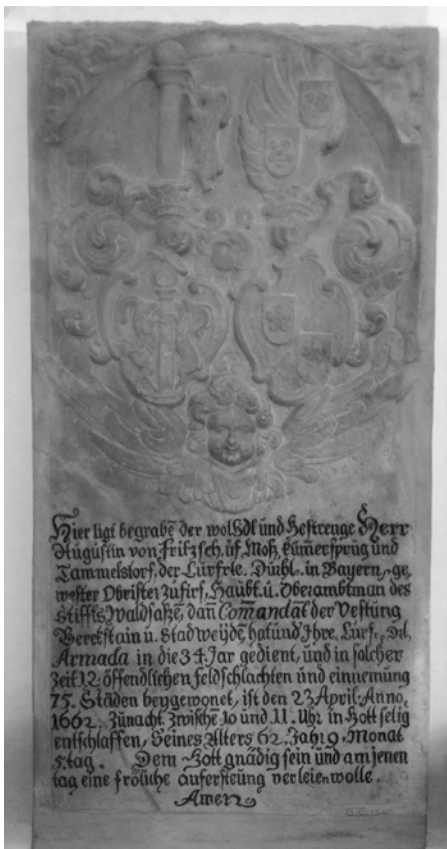 Hier ligt begrabē der wolEdl und Gestrenge Herr
Augustin von Fritzsch, uf Moß, Kūmersprug und
Tammelstorf, der Curfrle. Durhl. in Bayern, ge,
wester Obrister zu firs, Haubt. u. Oberambtman des
Stiffts Waldsaßē, dañ Com̄andāt der Vestung
u. Stad Weydē hat und Ihre. Curf. Drl,
Armada in die 34. Jar gedient, und in solcher
Zeit 12 öffendlichen feldschlachten und einnemung
75. Städen beygewonet, ist den 23 April. Anno,
1662. Zunacht Zwischē 10 und 11. Uhr in Gott selig
entschlaffen, Seines Alters 62. Jahr 9. Monat
5. tag. Dem Gott gnädig sein und am jenen
tag eine fröliche aufersteūng verleien wolle.
Amen